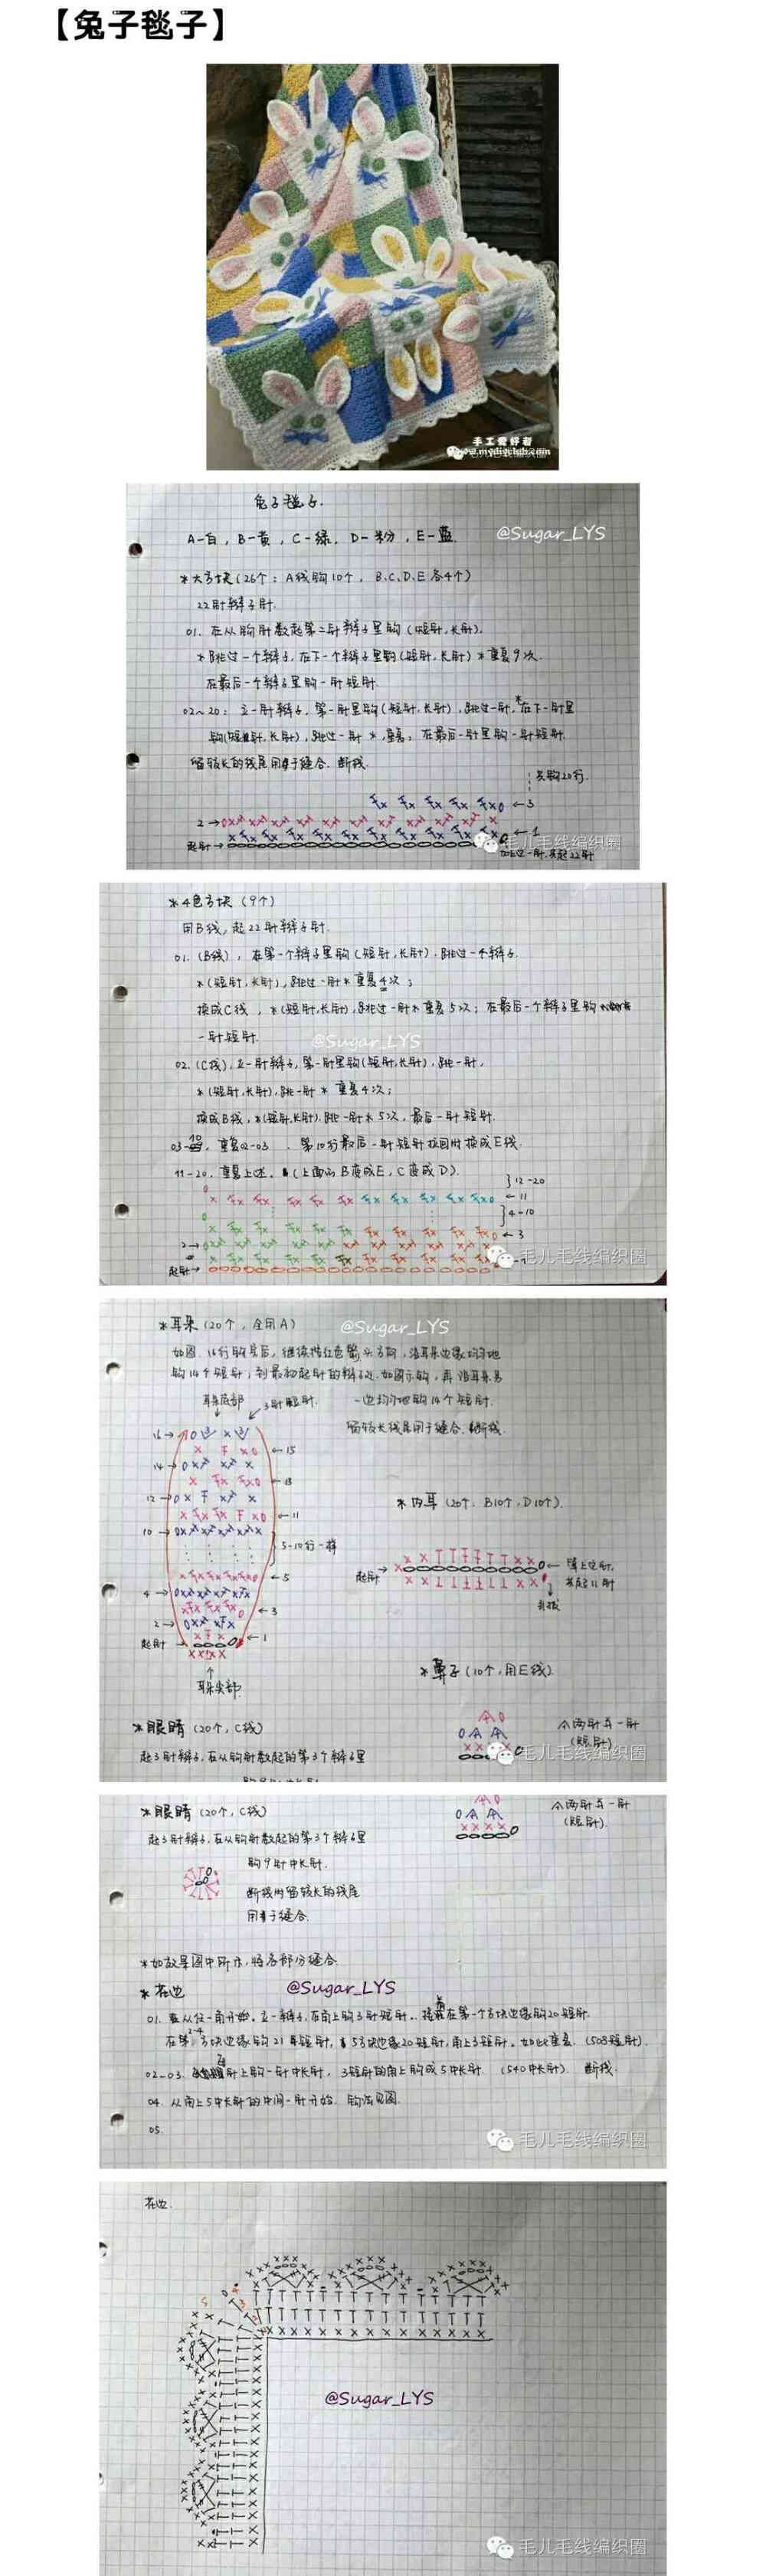 【兔子毯子】
手工爱好者
www.mydigclub.com
兔子毯子.
A-白, B-黄, C-绿, D-粉, E-蓝.
@Sugar_LYS
*大方块(26个: A线钩10个, B.C.D.E各4个)
22针辫子针.
01. 在从钩针数起第二针辫子里钩(短针,长针).
*跳过一个辫子,在下一个辫子里钩(短针,长针)*重复9次.
在最后一个辫子里钩一针短针.
02~20: 立一针辫子,第一针里钩(短针,长针),跳过一针,*在下一针里
钩(短针,长针),跳过一针*,重复,在最后一针里钩一针短针.
留较长的线尾用于缝合.断线.
共钩20行.
←3
2→
←1
起针→
毛儿毛线编织圈
加上这一针,共起22针
*4色方块(9个)
用B线,起22针辫子针.
01. (B线), 在第一个辫子里钩(短针,长针),跳过一个辫子.
*(短针,长针),跳过一针*重复4次;
换成C线, *(短针,长针),跳过一针*重复5次; 在最后一个辫子里钩
一针短针.
@Sugar_LYS
02. (C线),立一针辫子,第一针里钩(短针,长针),跳一针,
*(短针,长针),跳一针* 重复4次;
换成B线,*(短针,长针),跳一针*5次,最后一针短针.
03-10. 重复02-03. 第10行最后一针短针拉回时换成E线.
11-20. 重复上述. (上面的B变成E, C变成D).
}12-20
←11
}4-10
←3
2→
起针→
毛儿毛线编织圈
*耳朵(20个,全用A)
@Sugar_LYS
如图. 16行钩完后,继续按红色箭头方向,沿耳朵边缘均匀地
钩14个短针,到最初起针的辫子处.如图示钩,再沿耳朵另
一边均匀地钩14个短针.
留较长线尾用于缝合.断线.
耳朵底部
3针短针.
16→
←15
14→
←13
12→
←11
10→
}5-10行一样
←5
4→
←3
2→
←1
起针
耳朵尖部.
*内耳(20个. B10个,D10个).
起针→
算上这针,
共起11针
引拔
*鼻子(10个,用E线).
*眼睛(20个,C线)
起3针辫子,在从钩针数起的第3个辫子里
两针并一针
(短针)
毛儿毛线编织圈
*眼睛(20个,C线)
起3针辫子,在从钩针数起的第3个辫子里
钩9针中长针.
断线时留较长的线尾
用于缝合.
两针并一针
(短针).
*如效果图中所示,将各部分缝合.
*花边
@Sugar_LYS
01. 从任一角开始.立一辫子,在角上钩3针短针.接着在第一个方块边缘钩20短针.
在第2-4方块边缘钩21短针, 5方块边缘20短针,角上3短针.如此重复. (508短针).
02-03. 每针上钩一针中长针, 3短针的角上钩成5中长针. (540中长针). 断线.
04. 从角上5中长针的中间一针开始. 钩法见图.
05.
毛儿毛线编织圈
花边.
@Sugar_LYS
毛儿毛线编织圈